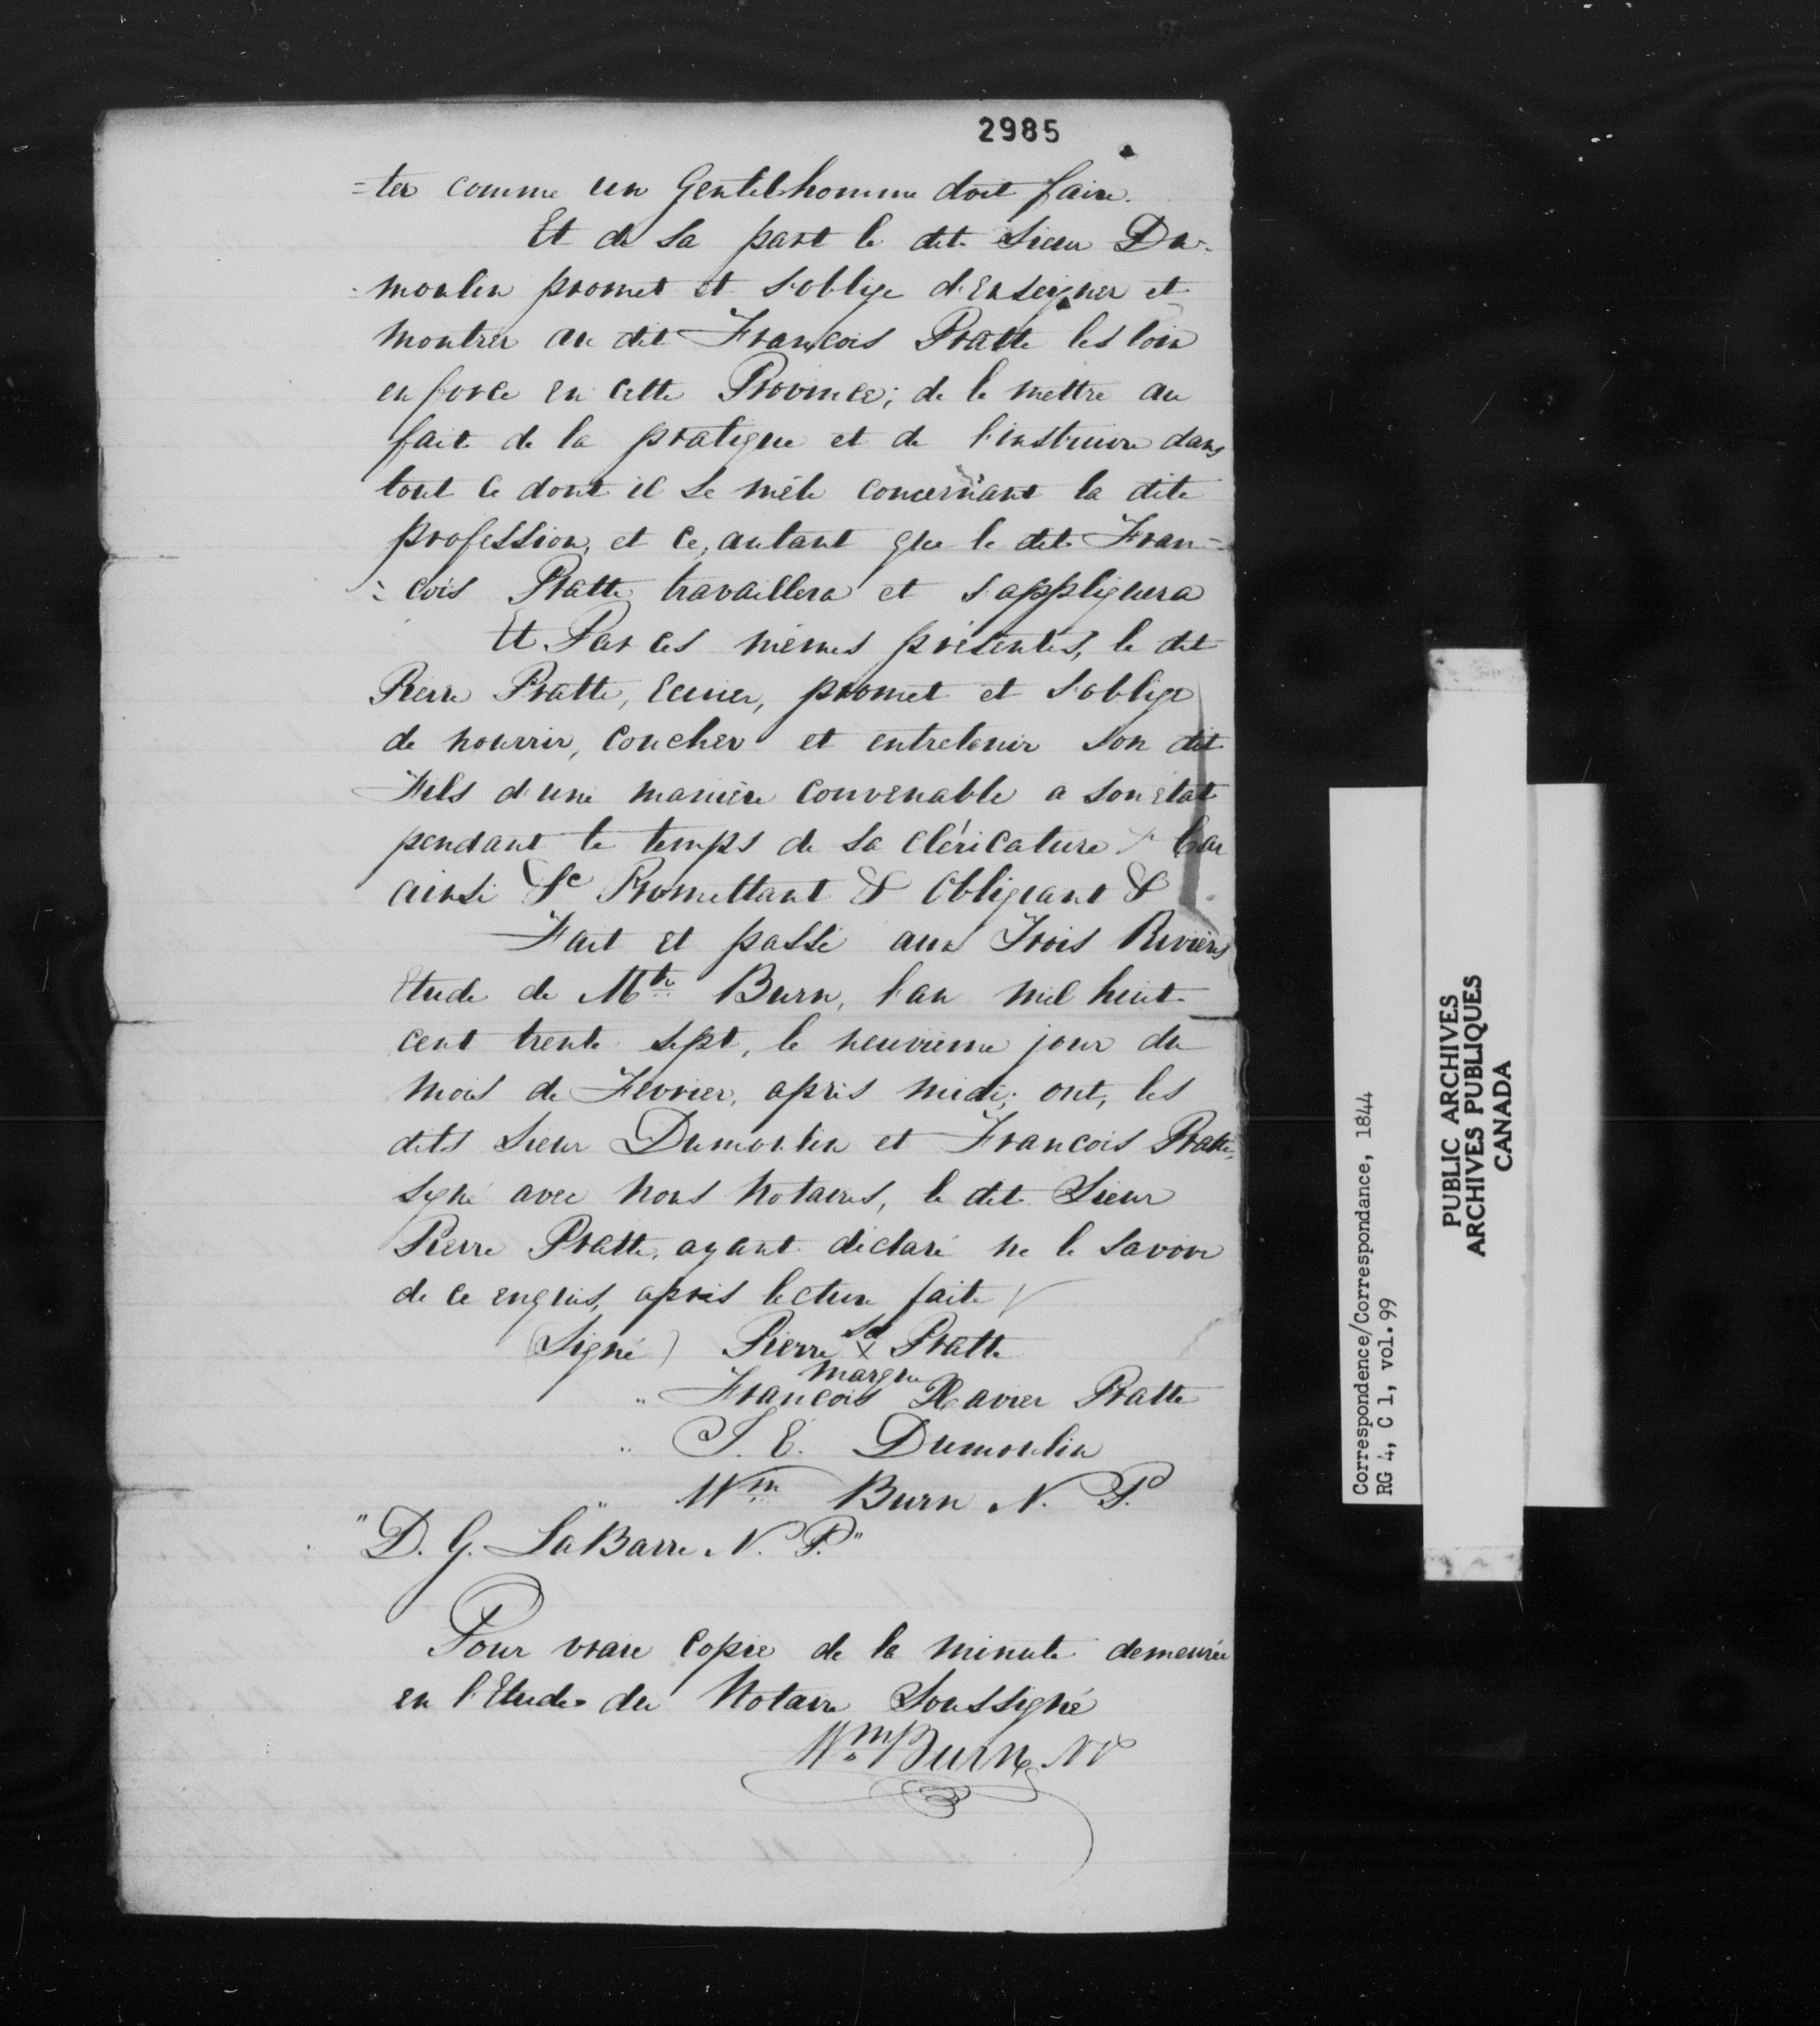 2985
=ter comme un Gentilhomme doit faire.
Et de Sa part le dit Sieur Du=
=moulin promet et s'oblige d'Enseigner et
montrer au dit François Pratte les loix
en force en cette Province; de le mettre au
fait de la pratique et de l'instruire dans
tout ce dont il se mêle concernant la dite
profession, et ce, autant que le dit Fran=
=cois Pratte travaillera et s'appliquera
Et Par ces mêmes présentes, le dit
Pierre Pratte, Ecuier, promet et s'oblige
de nourrir, coucher et entretenir son dit
Fils d'une manière convenable a son état
pendant le temps de sa cléricature Car
ainsi &c Promettant & Obligeant &
Fait et passé aux Trois Rivières
Etude de Mtre Burn, l'an mil huit
cent trente sept, le neuvieme jour du
mois de Fevrier, après midi; ont, les
dits Sieur Dumoulin et Francois Pratte,
signé avec nous Notaires, le dit Sieur
Pierre Pratte, ayant déclaré ne le savoir
de ce enquis, après lecture faite
(Signé) Pierre sa X Pratte
marque
" François Xavier Pratte
" P. E. Dumoulin
" Wm Burn N. P.
"D. G. LaBarre N. P."
Pour vraie Copie de la minute demeurée
en l'Etude du Notaire Soussigné
Wm Burn NP
Correspondence/Correspondance, 1844
RG 4, C 1, vol. 99
PUBLIC ARCHIVES
ARCHIVES PUBLIQUES
CANADA